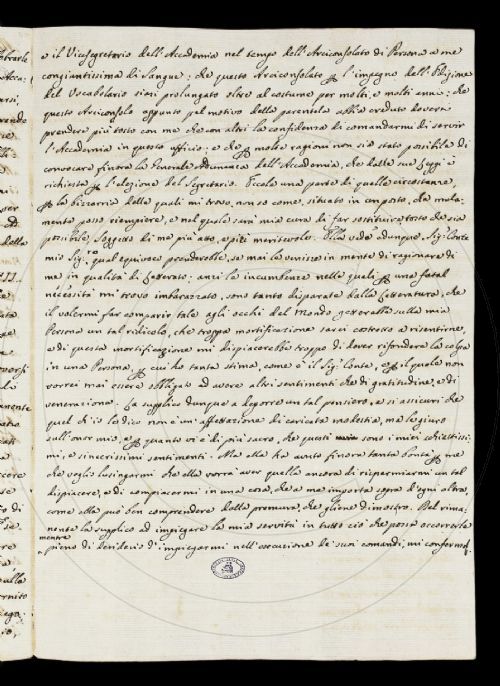 o il Vicesegretario dell'Accademia nel tempo dell'Arciconsolato di Persona a me
congiuntissima di Sangue: che questo Arciconsolato p l'impegno dell'Edizione
del Vocabolario siasi prolungato oltre al costume per molti, e molti anni: che
questo Arciconsolo appunto pel motivo della parentela abbia creduto doversi
prendere più tosto con me che con altri la confidenza di comandarmi di servir
l'Accademia in questo uffizio: e che p molte ragioni non sia stato possibile di
convocare finora la Generale Adunanza dell'Accademia, che dalle sue Leggi è
richiesta p l'elezione del Segretario. Eccole una parte di quelle circostanze,
p la bizzarria delle quali mi trovo, non so come, situato in un posto, che mala-
mente posso riempiere, e nel quale sarà mia cura di far sostituire tosto che sia
possibile, Soggetto di me più atto, e più meritevole. Ella vede adunque, Sig. Conte
mio Sig.re qual equivoco prenderebbe, se mai le venisse in mente di ragionare di
me in qualità di Letterato: anzi le incumbenze nelle quali p una fatal
necessità mi trovo imbarazzato, sono tanto disparate dalla Letteratura, che
il volermi far comparir tale agli occhi del Mondo getterebbe sulla mia
Persona un tal ridicolo, che troppa mortificazione sarei costretto a risentirne,
e di questa mortificazione mi dispiacerebbe troppo di dover rifondere la colpa
in una Persona, p cui ho tanta stima, come è il Sig. Conte, e p il quale non
vorrei mai essere obbligato ad avere altri sentimenti che di gratitudine, e di
venerazione. La supplico dunque a deporre un tal pensiero, e si assicuri che
quel ch'io le dico non è un'affettazione di caricata modestia, ma le giuro
sull'onor mio, e p quanto vi è di più sacro, che questi sono i miei schiettissi-
mi, e sincerissimi sentimenti. Ma ella ha avuto finora tanta bontà p me
che voglio lusingarmi che ella vorrà aver quella ancora di risparmiarmi un tal
dispiacere, e di compiacermi in una cosa, che a me importa sopra d'ogni altra,
come ella può ben comprendere dalla premura, che gliene dimostro. Del rima-
nente la supplico ad impiegare la mia servitù in tutto ciò che possa occorrerle
mentre
pieno di desiderio d'impiegarmi nell'esecuzione de' suoi comandi, mi confermo